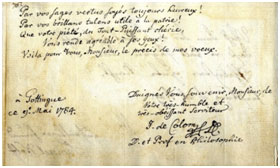 Par vos sages vertus soyés toujours heureux!
Par vos brillans talens utile à la patrie!
Que votre piété, du Tout-Puissant chérie,
Vous rende agréable à ses yeux!
Voilà pour Vous, Monsieur, le précis de mes voeux.
à Gottingue
ce 9. Mai 1784.
Daignés Vous souvenir, Monsieur, de
Votre très-humble et
très-obéissant Serviteur
J. de Colom
D. et Prof en Philosophie